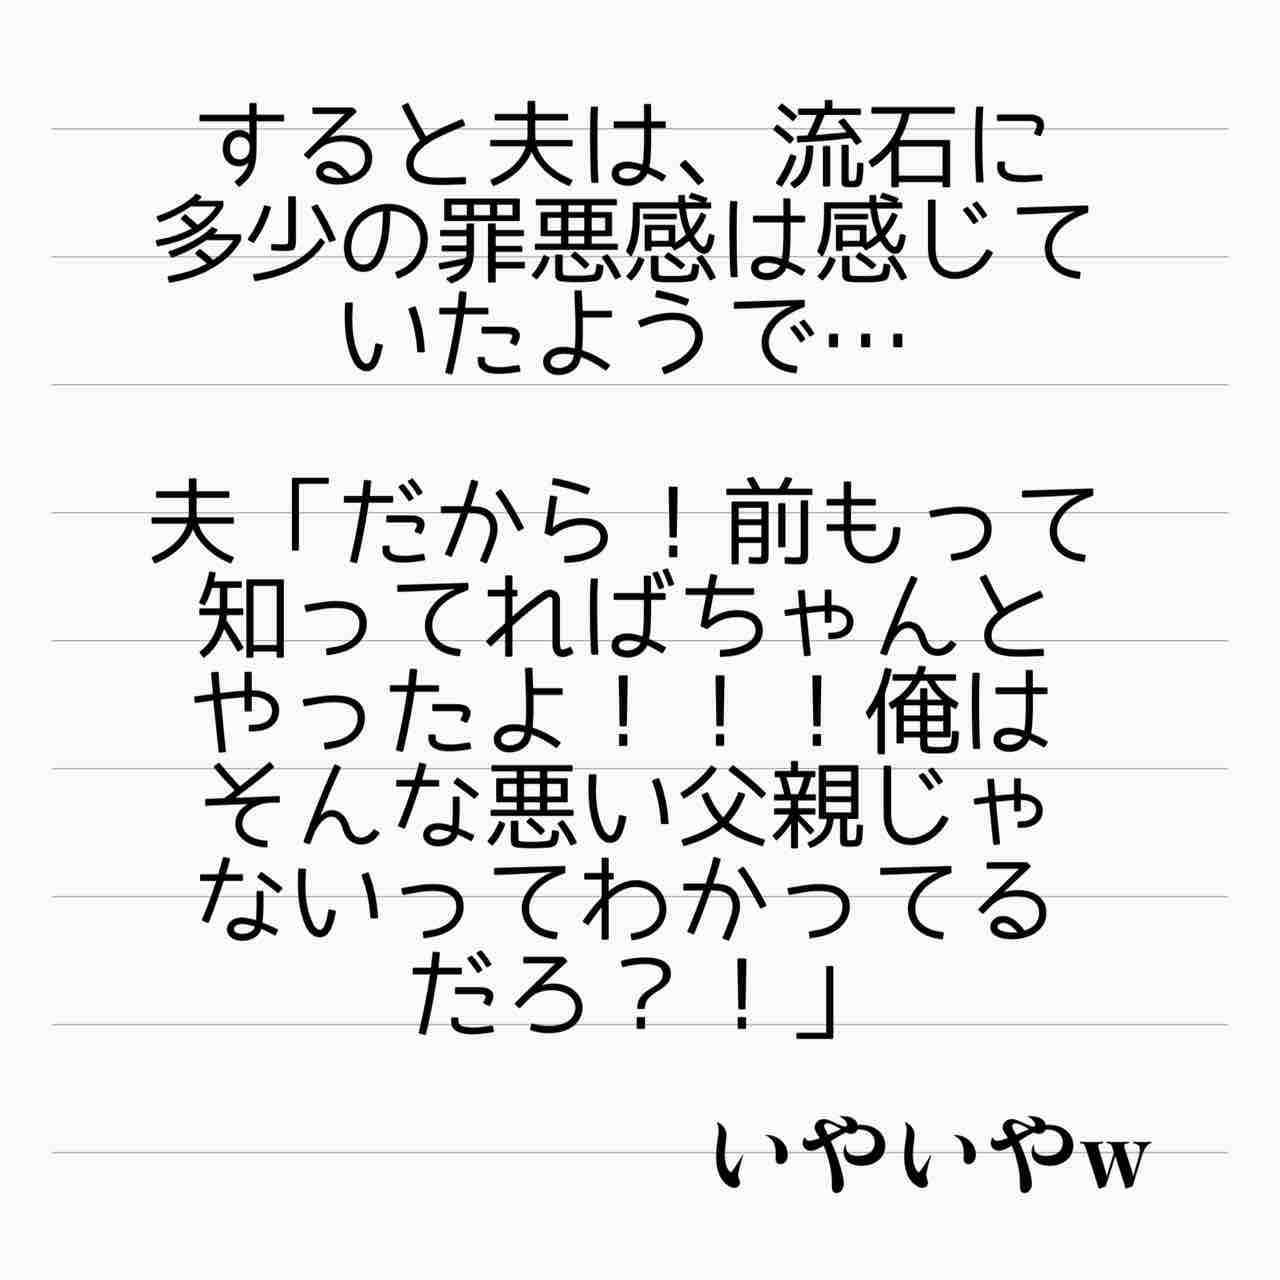 すると夫は、流石に
多少の罪悪感は感じて
いたようで…
夫「だから！前もって
知ってればちゃんと
やったよ！！！俺は
そんな悪い父親じゃ
ないってわかってる
だろ？！」
いやいやw